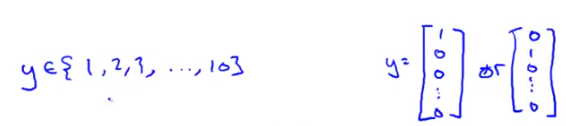 y ∈ { 1, 2, 3, ..., 10 }    y = [ 1 0 0 ⋮ 0 ] or [ 0 1 0 ⋮ 0 ]